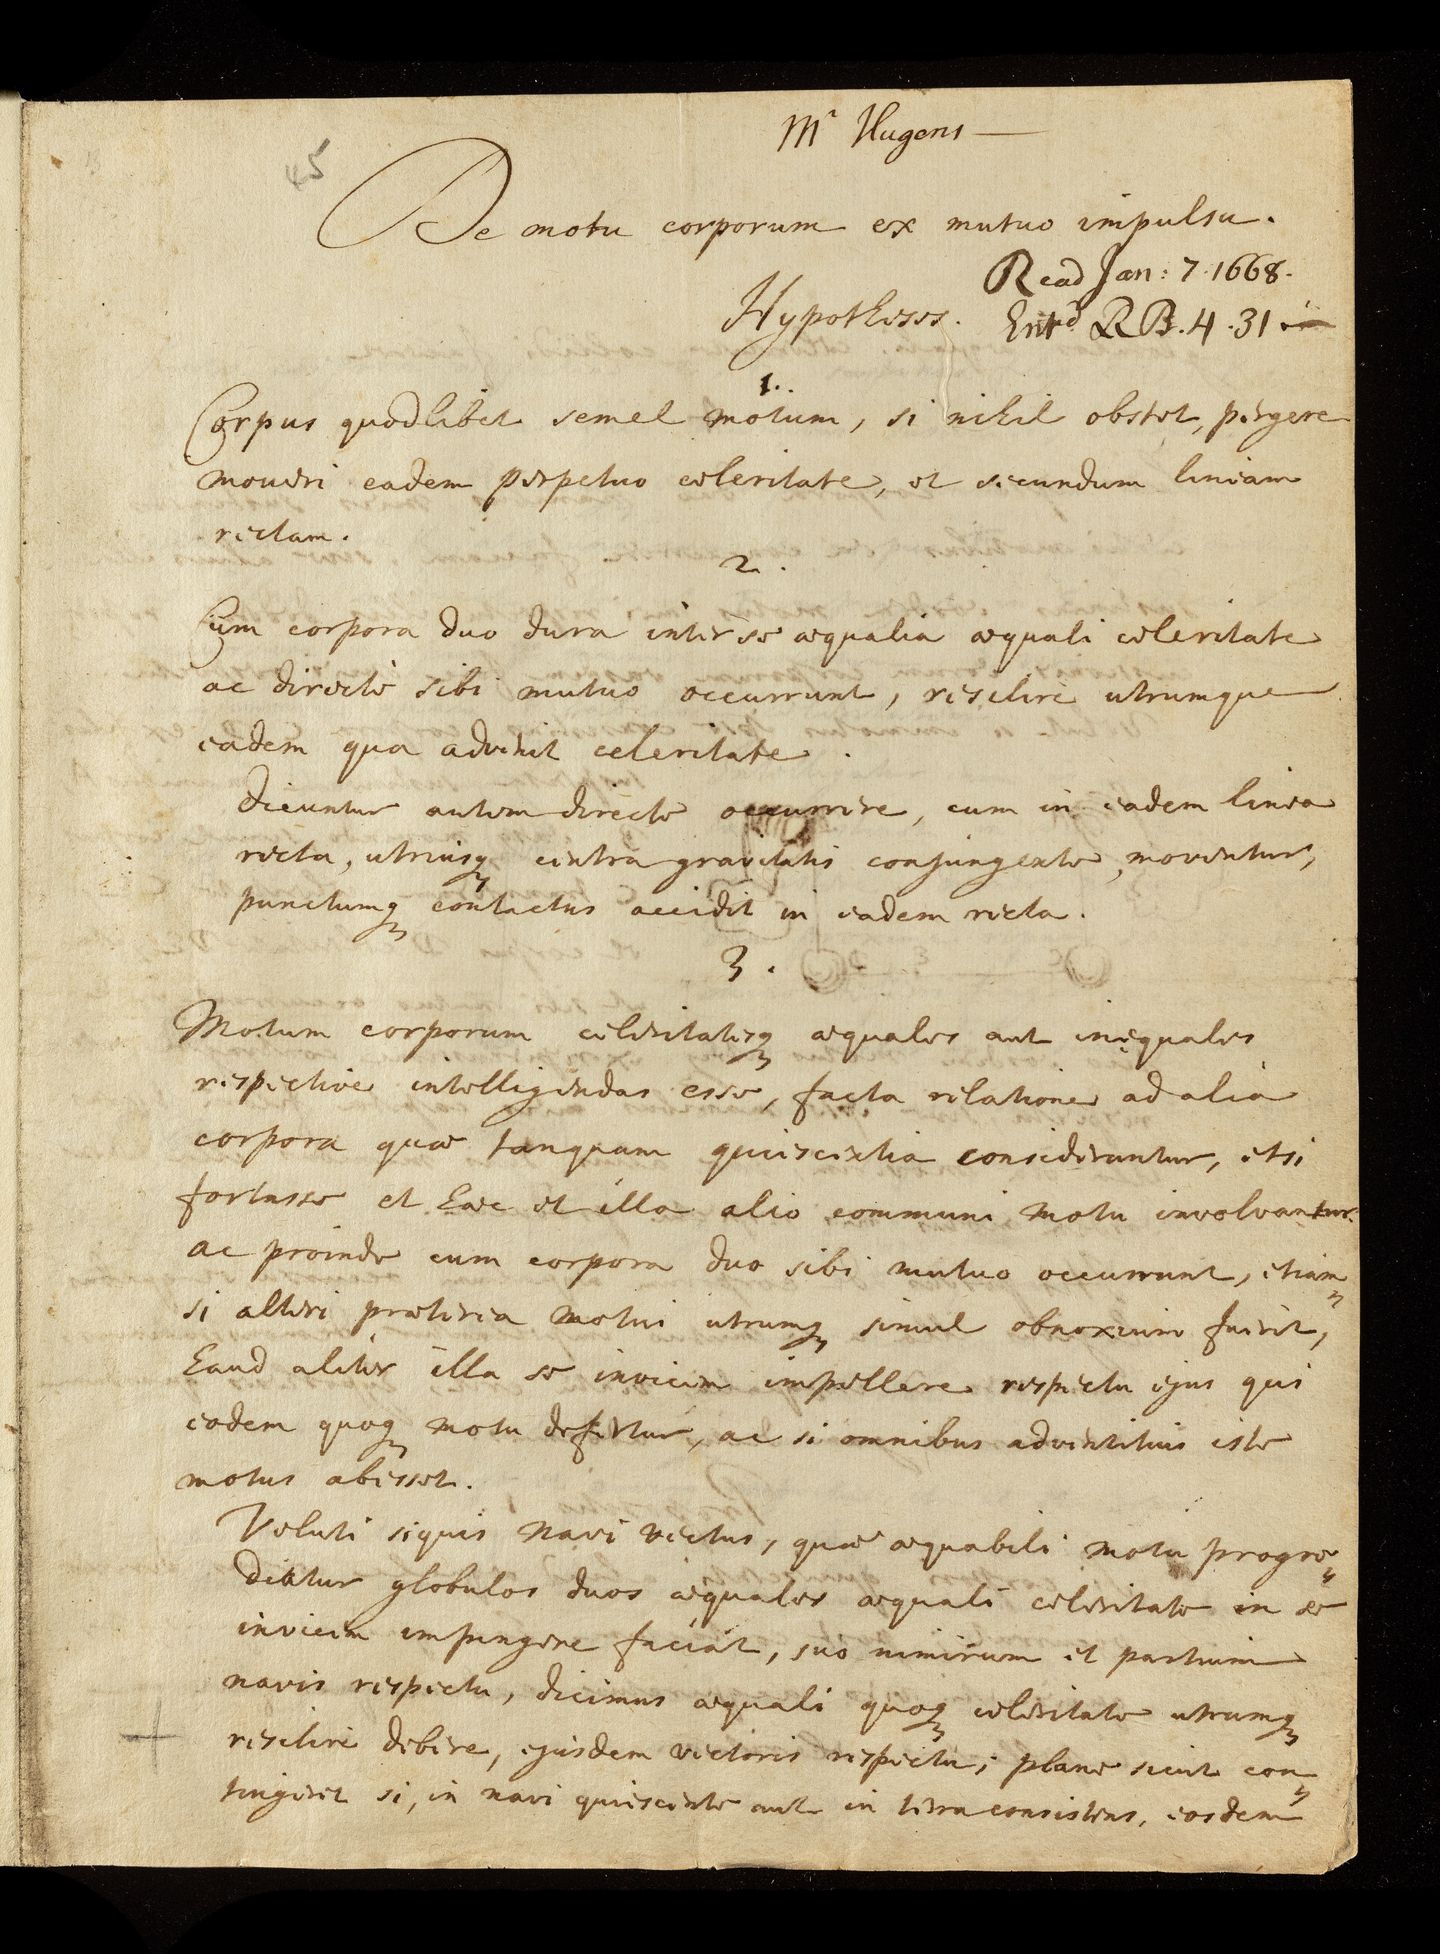 Mr Hugens
45
De motu corporum ex mutuo impulsu.
Read Jan: 7. 1668.
Hypothesis. Entrd RB. 4. 31
1.
Corpus quodlibet semel motum, si nihil obstet, pergere
moveri eadem perpetuo celeritate, et secundum lineam
rectam.
2.
Cum corpora duo dura inter se æqualia æquali celeritate
ac directè sibi mutuo occurrunt, resilire utrumque
eadem qua advenit celeritate.
dicuntur autem directe occurrere, cum in eadem linea
recta, utriusq centra gravitatis conjungente, moventur,
punctumq contactus accidit in eadem recta.
3.
Motum corporum celeritatesq æquales aut inequales
respective intelligendas esse, facta relatione ad alia
corpora quæ tanquam quiescentia considerantur, etsi
fortasse et hæc et illa alio communi motu involvantur.
ac proinde cum corpora duo sibi mutuo occurrunt, etiam
si alteri præterea motui utrumq simul obnoxium fuerit,
haud aliter illa se invicem impellere respectu ejus qui
eodem quoq motu defertur, ac si omnibus adventitius iste
motus abesset.
Veluti siquis navi vectus, quæ æquabili motu progre
ditur globulos duos æquales æquali celeritate in se
invicem impingere faciat, suo nimirum et partium
navis respectu, dicimus æquali quoq celeritate utrumq
resilire debere, ejusdem vectoris respectu; plane sicut con
tingeret si, in navi quiescente aut in terra consistens, eosdem